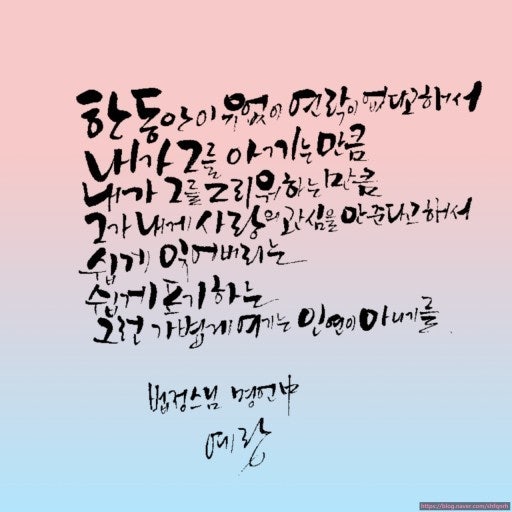 한동안 이유없이 연락이 없다고 해서
내가 그를 아끼는 만큼
내가 그를 그리워하는 만큼
그가 내게 사랑의 관심을 안준다고해서
쉽게 잊어버리는
쉽게 포기하는
그런 가볍게 여기는 인연이 아니기를.
법정스님 명언中
예랑
https://blog.naver.com/shfqnrh